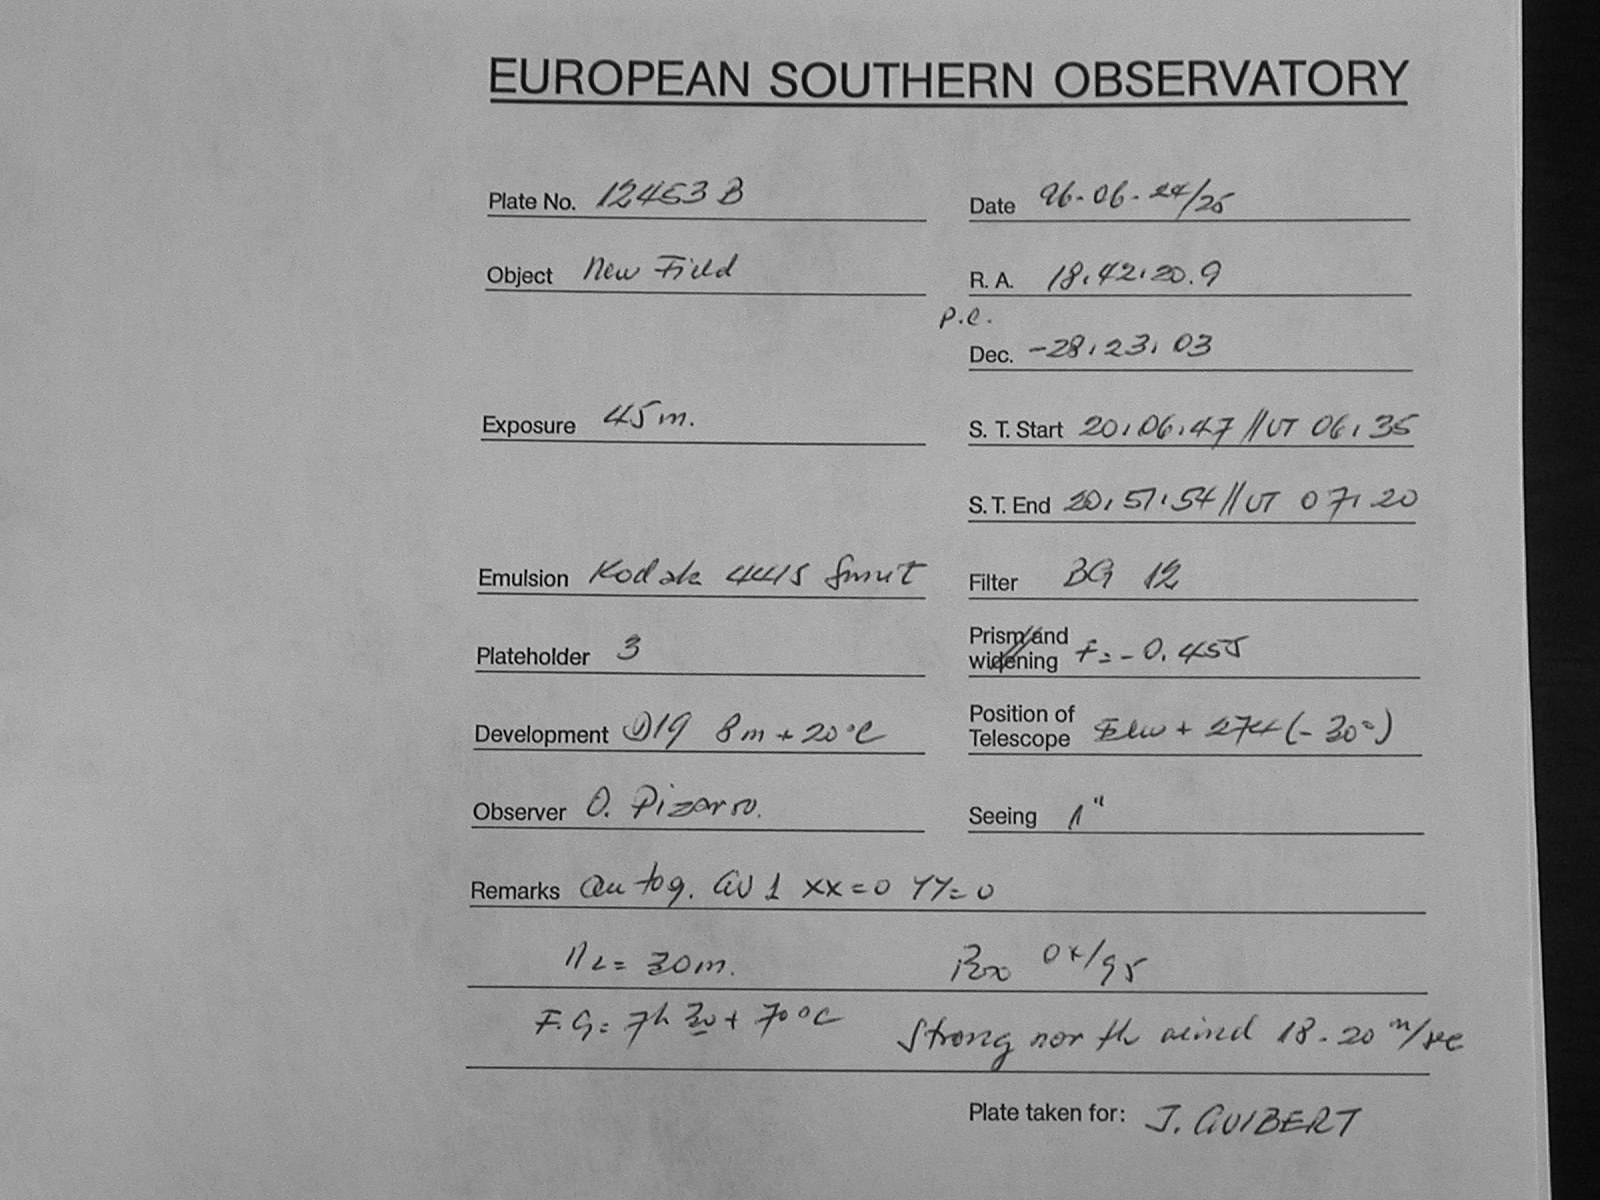 EUROPEAN SOUTHERN OBSERVATORY
Plate No. 12453 B Date 96-06-24/25
Object New Field R. A. 18.42.20.9
P.C.
Dec. -28.23.03
Exposure 45 m. S. T. Start 20.06.47 // UT 06.35
S. T. End 20.51.54 // UT 07.20
Emulsion Kodak 4415 Filter BG 12
Plateholder 3 Prism and widening F=-0.455
Development D19 8m + 20°C Position of Telescope + 274 (-30°)
Observer O. Pizarro. Seeing 1"
Remarks autog. GV 1 XX=0 YY=0
N2= 30m. Box 04/95
F.G= 7h 30 + 70°C Strong north wind 18-20 m/sec
Plate taken for: J. GUIBERT